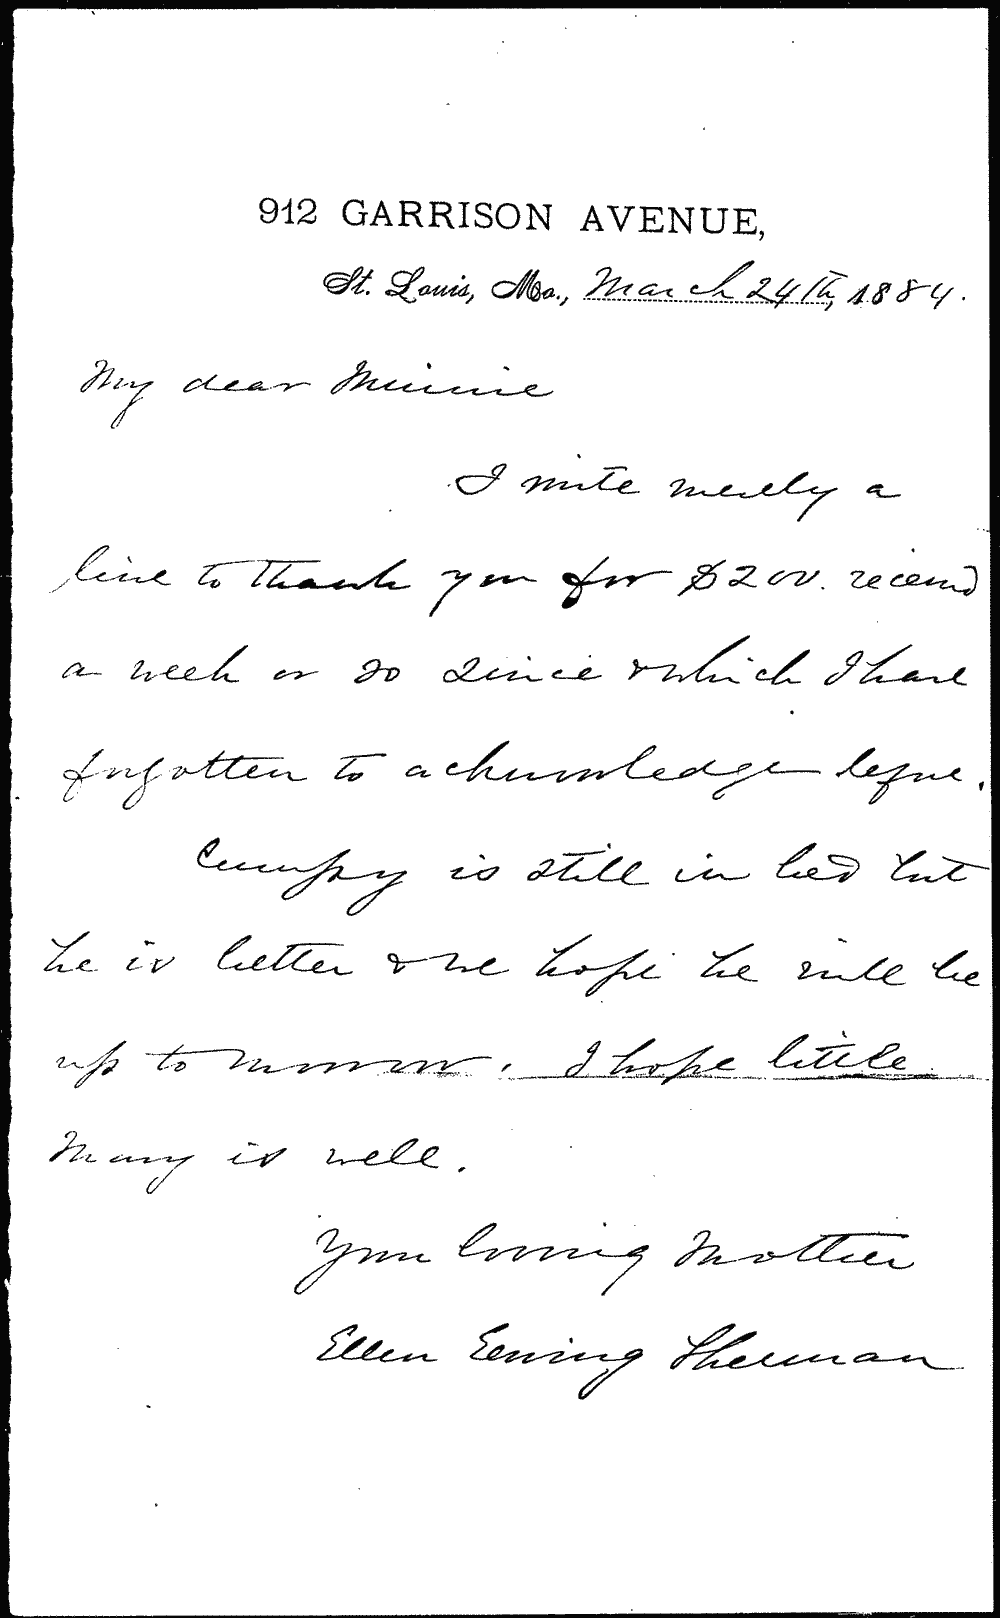 912 GARRISON AVENUE,
St. Louis, Mo., March 24th, 1884.
My dear Minnie
I write merely a
line to thank you for $200. received
a week or so since & which I have
forgotten to acknowledge before.
Cumpy is still in bed but
he is better & we hope he will be
up to morrow. I hope little
Mary is well.
Your loving Mother
Ellen Ewing Sherman